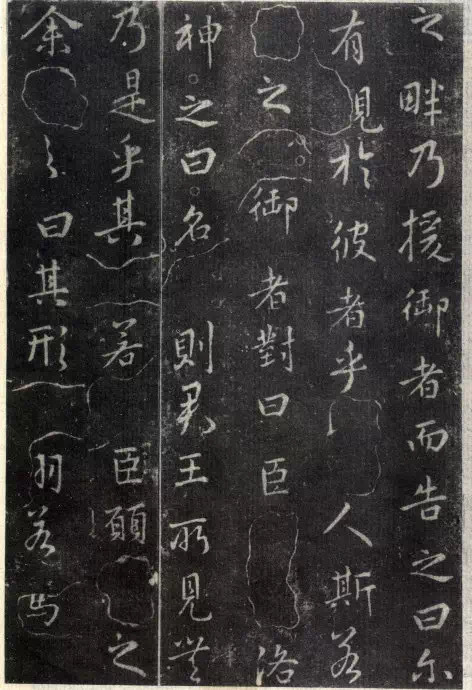 之畔乃援御者而告之曰尔
有見於彼者乎 人斯若
之 御者對曰臣 洛
神之曰名 則君王所見無
乃是乎其 若 臣願 之
余 之曰其形 羽若